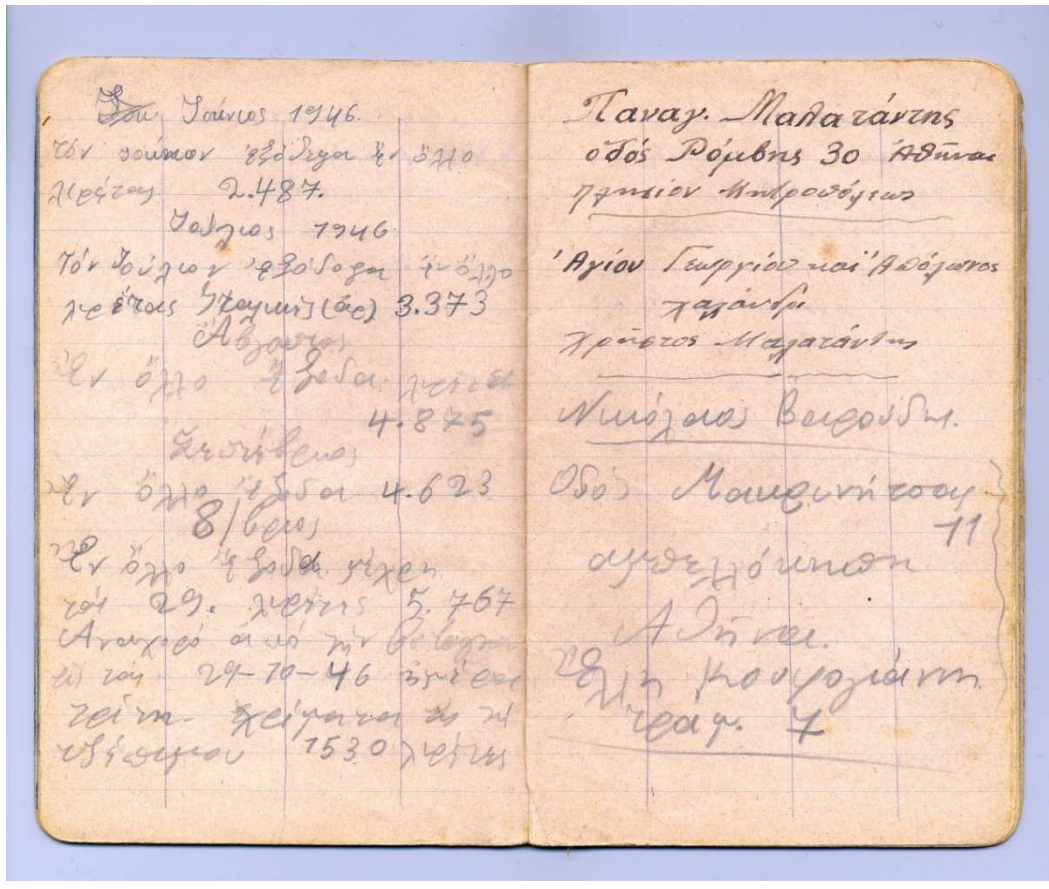 Ἰούνιος 1946.
τόν ἰούνιον ἐξόδεψα ἔν ὅλλο
λιρέτας 2.487.
Ἰούλιος 1946
τόν Ἰούλιον ἐξόδοψα ἔν ὅλλο
λιρέτας 3.373
Αὔγουστος
Ἐν ὅλλο ἔξοδα λιρέτας
4.875
Σεπτέβριος
Ἐν ὅλλο ἔξοδα 4.623
8/βριος
Ἐν ὅλλο ἔξοδα μέχρη
τάς 29. λιρέτες 5.767
Αναχορό ἀπό τήν
εἰς τάς 29-10-46 ἡμέρα
τρίτη χρίματα
1530 λιρέτες
Παναγ. Μαλατάντης
ὁδός Ρόμβης 30 Ἀθῆναι
πλησίον Μητροπόλεως
Ἁγίου Γεωργίου καί Ἀπόλωνος
χαλάνδρι
Χρῆστος Μαλατάντης
Νικόλαος
Οδός Μακρινήτσας
11
αμπελλόκηπη
Αθῆναι.
Ἔλλη
τράμ. 7